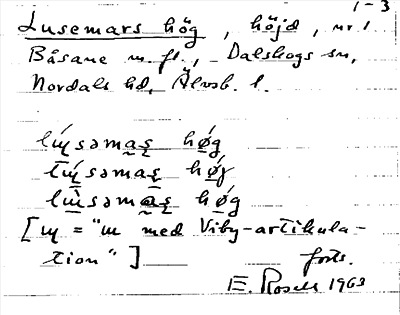 1-3
Lusemars hög, höjd, nr 1
Båsane m. fl., Dalskogs sn,
Nordals hd, Älvsb. l.
lɯ́səmas̨ hǿg
lɯ́səmas̨ hǿj
lɯ̀səmas̨ hǿg
[ɯ = "ɯ med Viby-artikula-
tion"] forts.
E. Rosell 1963